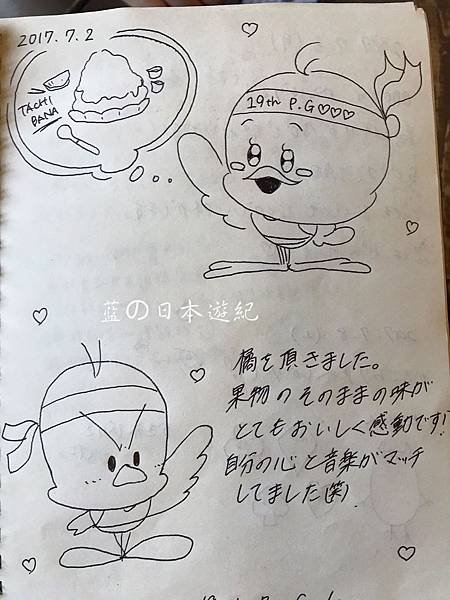 2017.7.2
TACHI
BANA
19th P.G♡♡♡
藍の日本遊紀
橘を頂きました。
果物のそのままの味が
とてもおいしく感動です!
自分の心と音楽がマッチ
してました(笑)